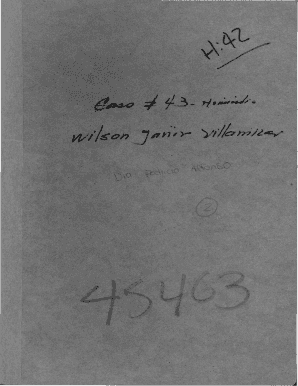 H:42
Caso # 43 - Homicidio.
Wilson Janir Villamizar
45463